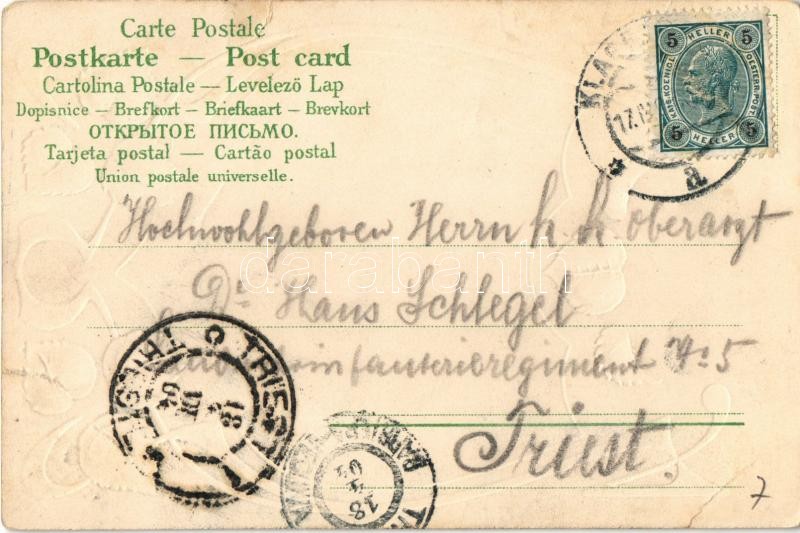 Carte Postale
Postkarte — Post card
Cartolina Postale — Levelező Lap
Dopisnice — Brefkort — Briefkaart — Brevkort
ОТКРЫТОЕ ПИСЬМО.
Tarjeta postal — Cartão postal
Union postale universelle.
5 HELLER 5
KAIS. KOENIGL. OESTERR. POST.
5 HELLER 5
17.
a
Hochwohlgeboren Herrn k. k. Oberarzt
Dr Hans Schlegel
infanterieregiment No 5
Triest.
TRIEST TRIESTE
18
VIII
04
18
04
darabanth
7